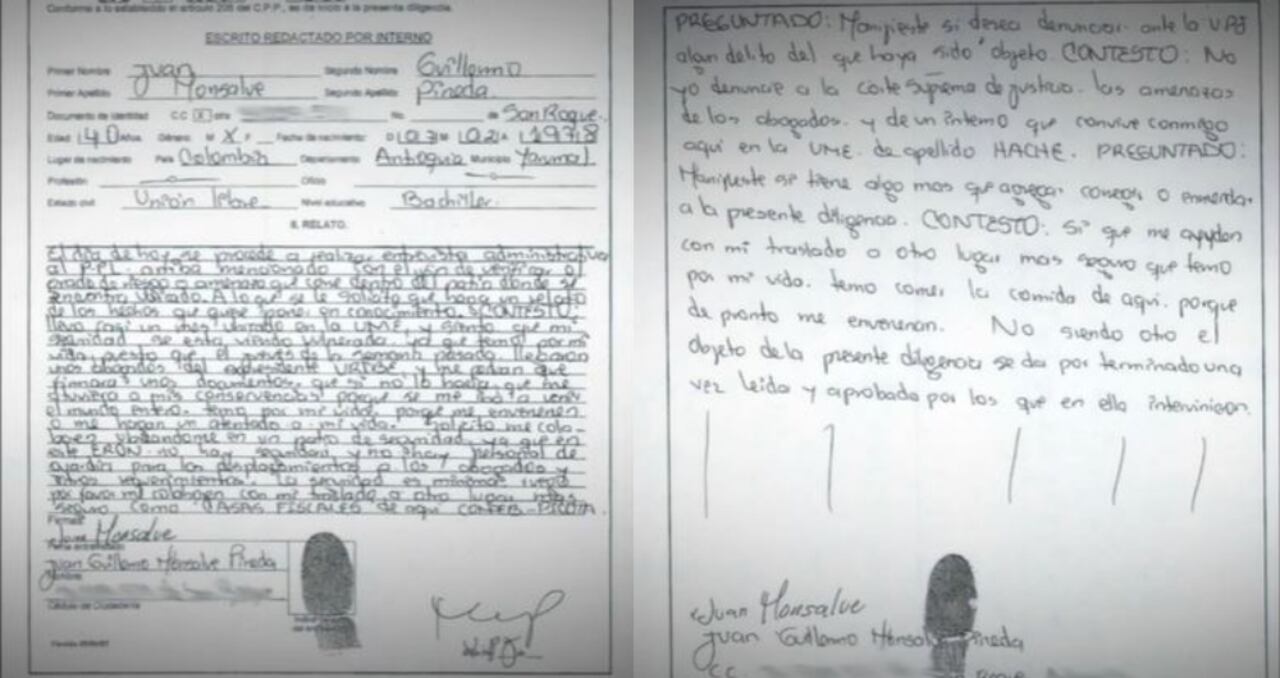 Conforme a lo establecido el artículo 206 del C.P.P., se da inicio a la presente diligencia.
ESCRITO REDACTADO POR INTERNO
Primer Nombre Juan Segundo Nombre Guillermo
Primer Apellido Monsalve Segundo Apellido Pineda
Documento de identidad C.C X otro No. de San Roque
Edad 40 Años. Género: M X F Fecha de nacimiento: D 03 M 02 A 1978
Lugar de nacimiento País Colombia Departamento Antioquia Municipio Yarumal
Profesión Oficio
Estado civil Unión libre Nivel educativo Bachiller
II. RELATO.
El día de hoy se procede a realizar entrevista administrativa
al PPL arriba mencionado con el fin de verificar el
grado de riesgo o amenaza que corre dentro del patio donde se
encuentra ubicado. A lo que se le solicita que haga un relato
de los hechos que quiere poner en conocimiento. CONTESTO:
llevo aquí un mes ubicado en la UME, y siento que mi
seguridad se esta viendo vulnerada. ya que temo por mi
vida, puesto que el jueves de la semana pasada, llegaron
unos abogados del expresidente URIBE, y me pedian que
firmara unos documentos, que si no lo hacia, que me
atuviera a mis conservencias porque se me iba a venir
el mundo entero. temo por mi vida, porque me envenenen
o me hagan un atentado a mi vida. Solicito me colo-
quen ubicandome en un patio de seguridad, ya que en
este ERON no hay seguridad, y no hay personal de
guardia para los desplazamientos a los abogados y
otros requerimientos. La seguridad es minima. ruego
por favor me colaboren con mi traslado a otro lugar mas
seguro como CASAS FISCALES de aquí COMEB-PICOTA.
Firmas
Juan Monsalve
Juan Guillermo Monsalve Pineda
Nombre
Cédula de Ciudadanía
PREGUNTADO: Manifieste si desea denunciar ante la UPJ
algun delito del que haya sido objeto. CONTESTO: No
yo denuncie a la corte Suprema de justicia. las amenazas
de los abogados. y de un interno que convive conmigo
aqui en la UME. de apellido HACHE. PREGUNTADO:
Manifieste se tiene algo mas que agregar coregir o enmendar
a la presente diligencia. CONTESTO: si que me ayuden
con mi traslado a otro lugar mas seguro que temo
por mi vida. temo comer la comida de aqui. porque
de pronto me envenenan. No siendo otro el
objeto de la presente diligencia se da por terminado una
vez leida y aprobada por los que en ella intervinieron.
Juan Monsalve
Juan Guillermo Monsalve Pineda
C.C.